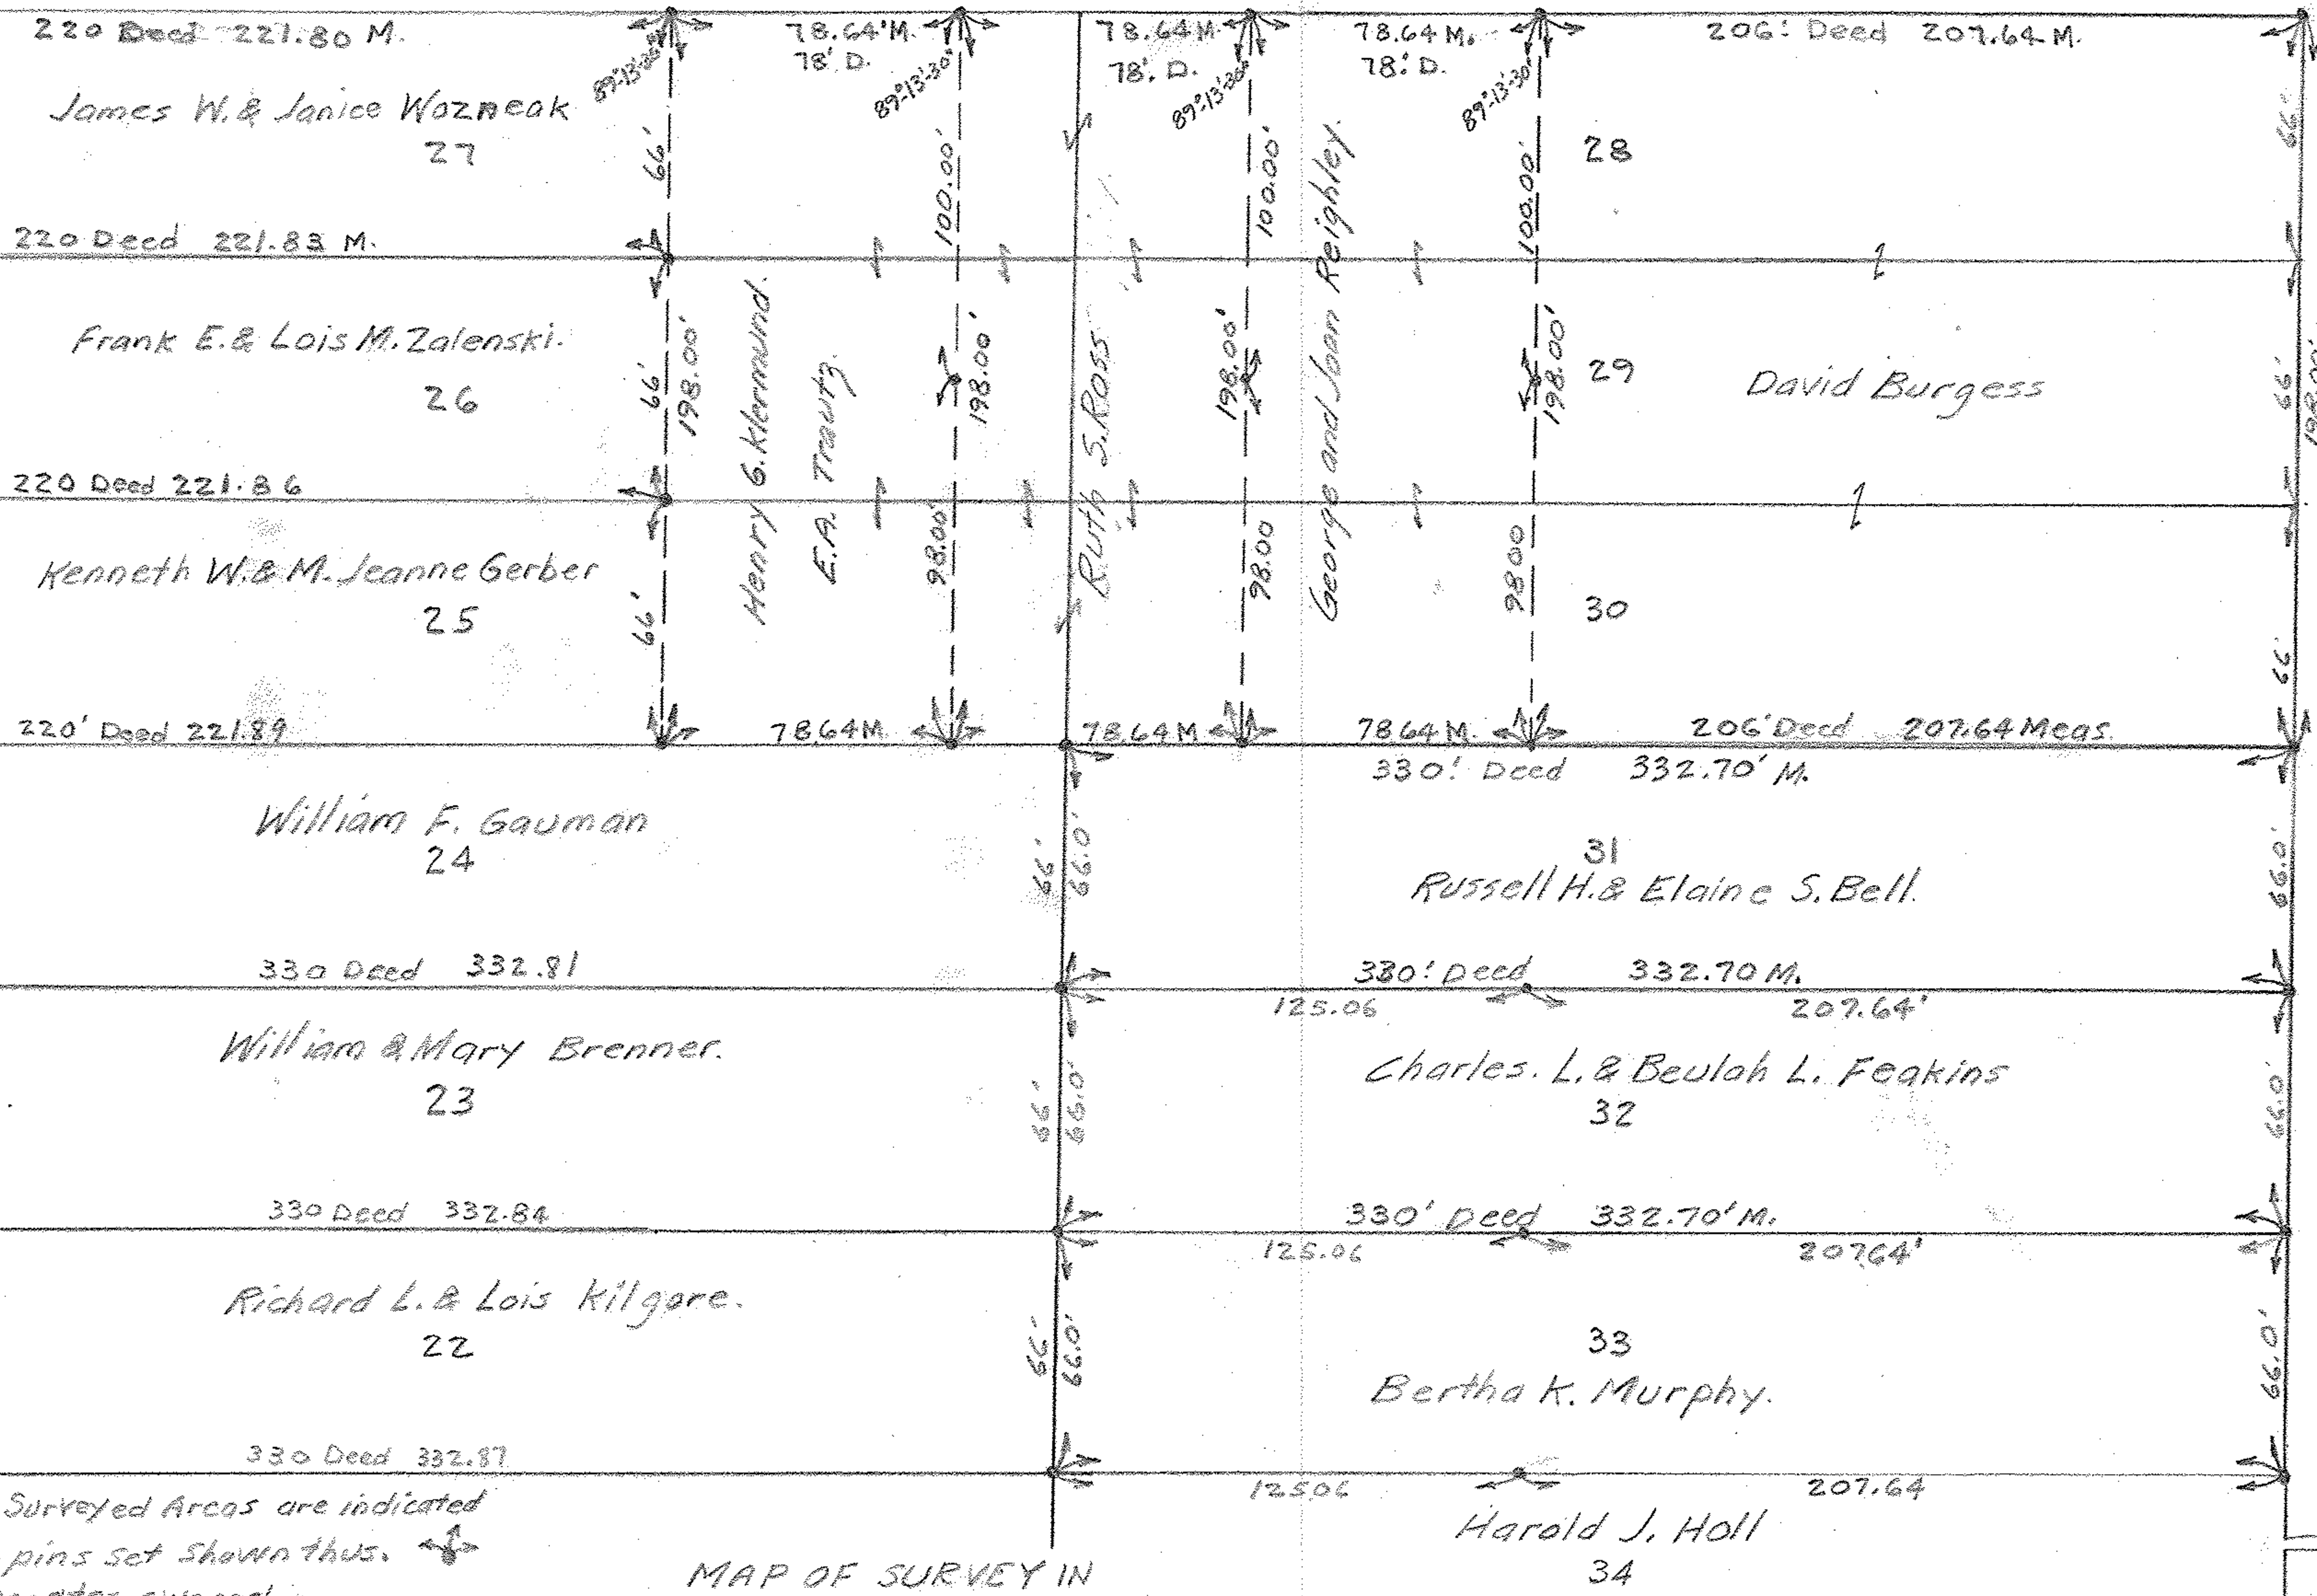 220 Deed 221.80 M.
78.64'M.
78' D.
78.64 M.
78'. D.
78.64 M.
78'. D.
206' Deed 207.64 M.
89°-13'-30"
89°-13'-30"
89°-13'-30"
89°-13'-30"
James W. & Janice Wozneak
27
66'
100.00'
100.00'
100.00'
28
66'
220 Deed 221.83 M.
Frank E. & Lois M. Zalenski.
26
66'
198.00'
Henry G. Klermund.
E.A. Trautz.
198.00'
Ruth S. Ross
198.00'
George and Joan Reighley.
198.00'
29
David Burgess
66'
220 Deed 221.86
Kenneth W. & M. Jeanne Gerber
25
66'
98.00'
98.00
98 00
30
66'
220' Deed 221.89
78.64 M
78.64 M
78.64 M.
206' Deed 207.64 Meas.
330' Deed 332.70' M.
William F. Gauman
24
66'
66.0'
31
Russell H. & Elaine S. Bell.
66.0'
330 Deed 332.81
330' Deed 332.70 M.
125.06
207.64'
William & Mary Brenner.
23
66'
66.0'
Charles. L. & Beulah L. Feakins
32
66.0'
330 Deed 332.84
330' Deed 332.70' M.
125.06
207.64'
Richard L. & Lois Kilgore.
22
66'
66.0'
33
Bertha K. Murphy.
66.0'
330 Deed 332.87
125.06
207.64
Surveyed Areas are indicated
pins set Shown thus.
Harold J. Holl
34
MAP OF SURVEY IN